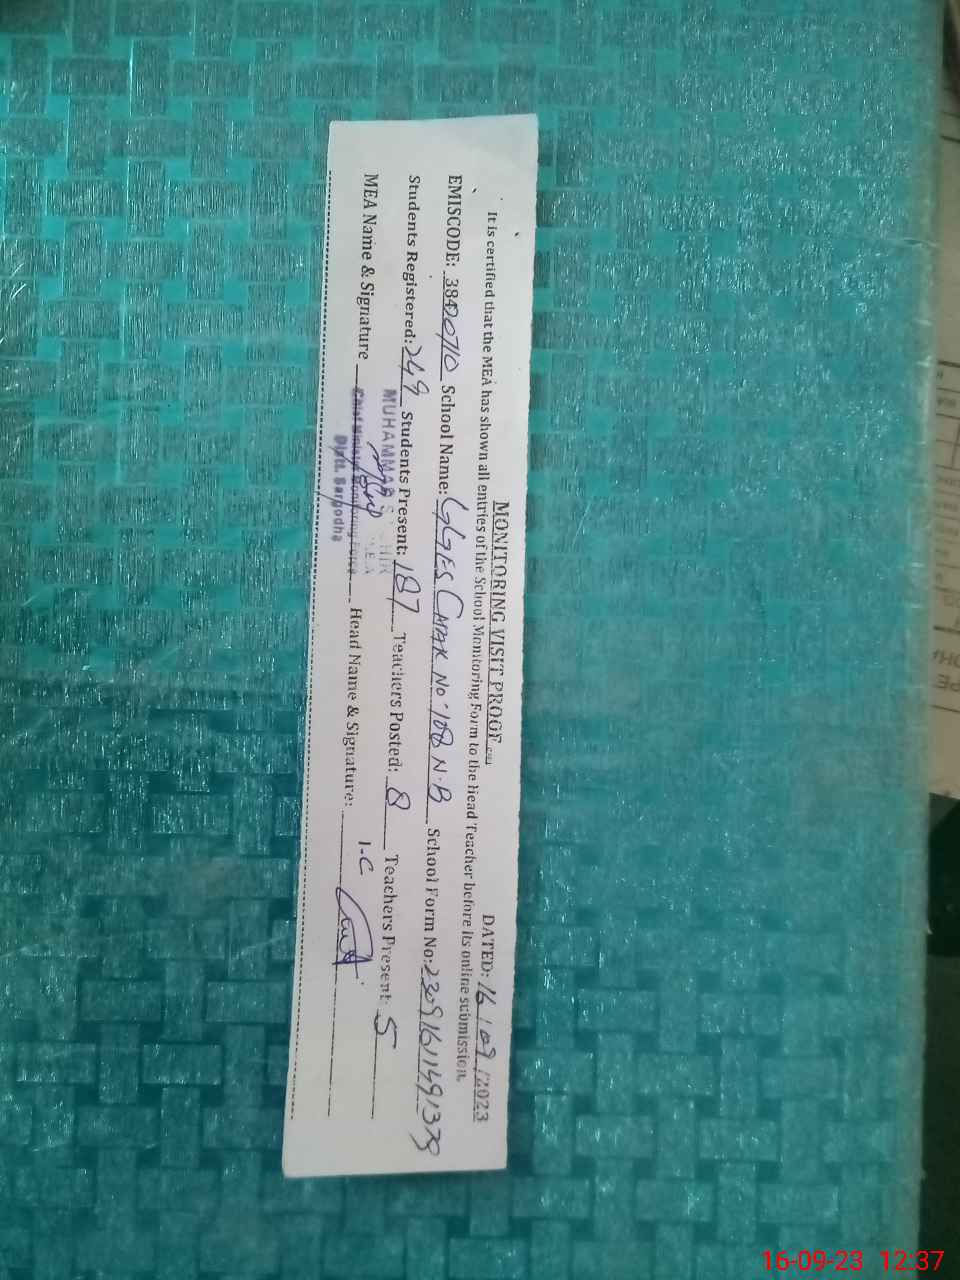 MONITORING VISIT PROOF
DATED: 16 / 09 / 2023
It is certified that the MEA has shown all entries of the School Monitoring Form to the Head Teacher before its online submission.
EMISCODE: 38420710 School Name: GGES CHAK No. 108 N.B School Form No:
Students Registered: 249 Students Present: 187 Teachers Posted: 8 Teachers Present: 5
MUHAMMAD
MEA Name & Signature Head Name & Signature: I-C
Chief Minister Monitoring Force
Distt. Sargodha
16-09-23 12:37